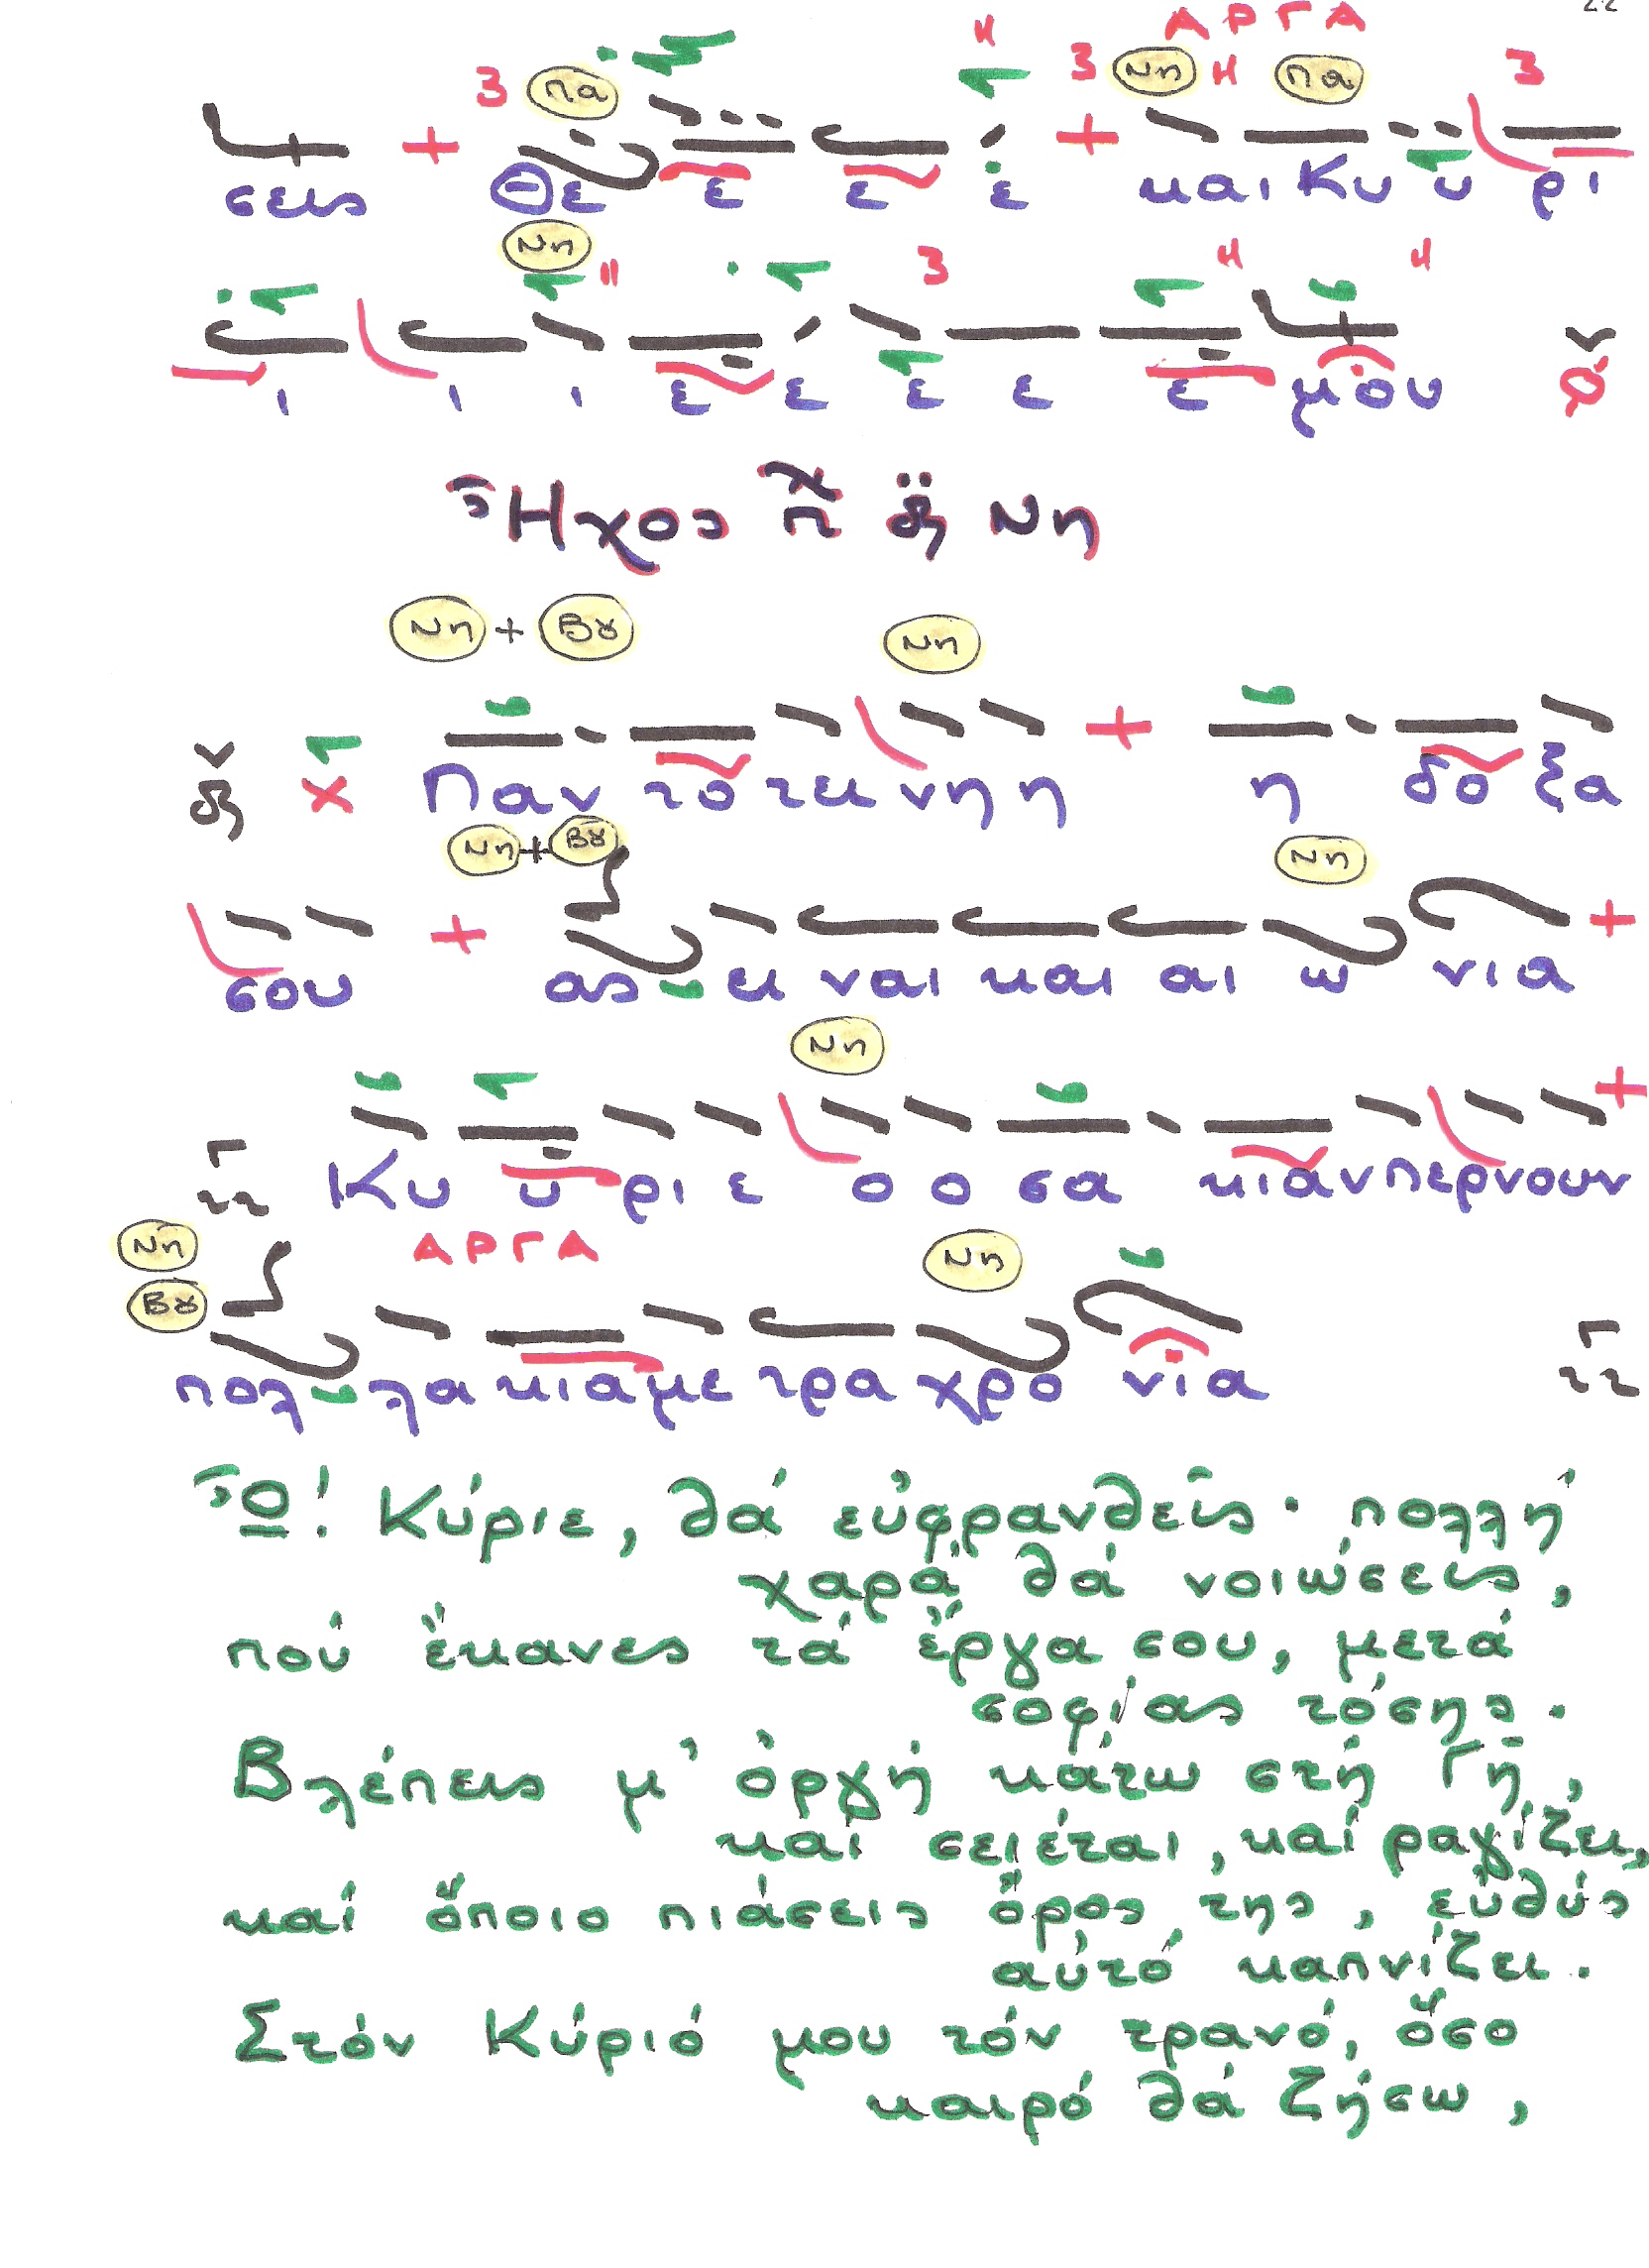 22
ΑΡΓΑ
Πα Νη Πα
σεις Θε ε ε ε και Κυ υ ρι
Νη
ι ι ι ε ε ε ε ε μου
Ἦχος Νη
Νη + Βου Νη
Παν το τει νη η η δο ξα
Νη + Βου Νη
σου ας ει ναι και αι ω νια
Νη
Κυ υ ρι ε ο ο σα κι αν περνουν
Νη ΑΡΓΑ Νη
Βου
πολ λα κι α με τρα χρο νια
Ὦ! Κύριε, θά εὐφρανθεῖς· πολλή
χαρά θά νοιώσεις,
πού ἔκανες τά ἔργα σου, μετά
σοφίας τόσης.
Βλέπεις μ' ὀργή κάτω στή Γῆ,
καί σειέται, καί ραγίζει,
καί ὅποιο πιάσεις ὄρος της, εὐθύς
αὐτό καπνίζει.
Στόν Κύριό μου τόν τρανό, ὅσο
καιρό θά ζήσω,